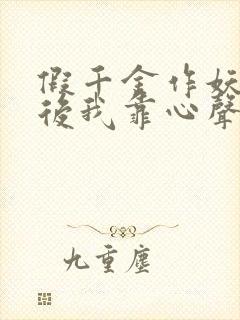 假千金作妖
後我靠心聲
九重塵